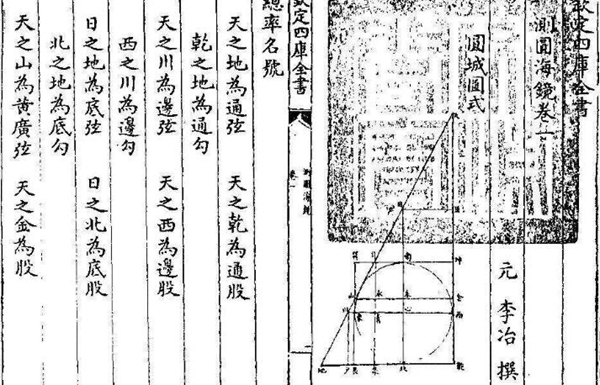 欽定四庫全書
測圓海鏡卷一
元 李冶 撰
圓城圖式
南
心
西
金
山
川
地
北
乾
欽定四庫全書
總率名號
天之地為通弦 天之乾為通股
乾之地為通勾
天之川為邊弦 天之西為邊股
西之川為邊勾
日之地為底弦 日之北為底股
北之地為底勾
天之山為黃廣弦 天之金為股